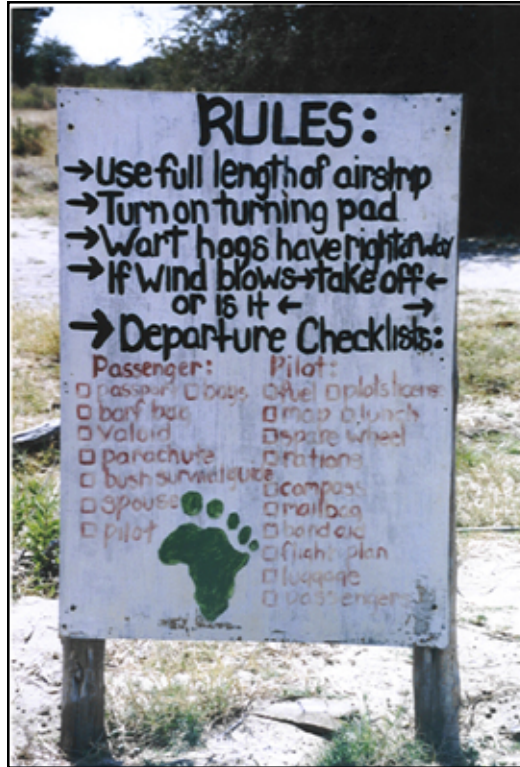 RULES:
→Use full length of airstrip
→Turn on turning pad
→Wart hogs have right of way
→If wind blows→take off←
or is it ← →
→Departure Checklists:
Passenger:
□ passport □ bags
□ barf bag
□ valoid
□ parachute
□ bush survival guide
□ spouse
□ pilot
Pilot:
□ fuel □ pilots license
□ map □ lunch
□ spare wheel
□ rations
□ compass
□ mailbag
□ band aid
□ flight plan
□ luggage
□ passengers